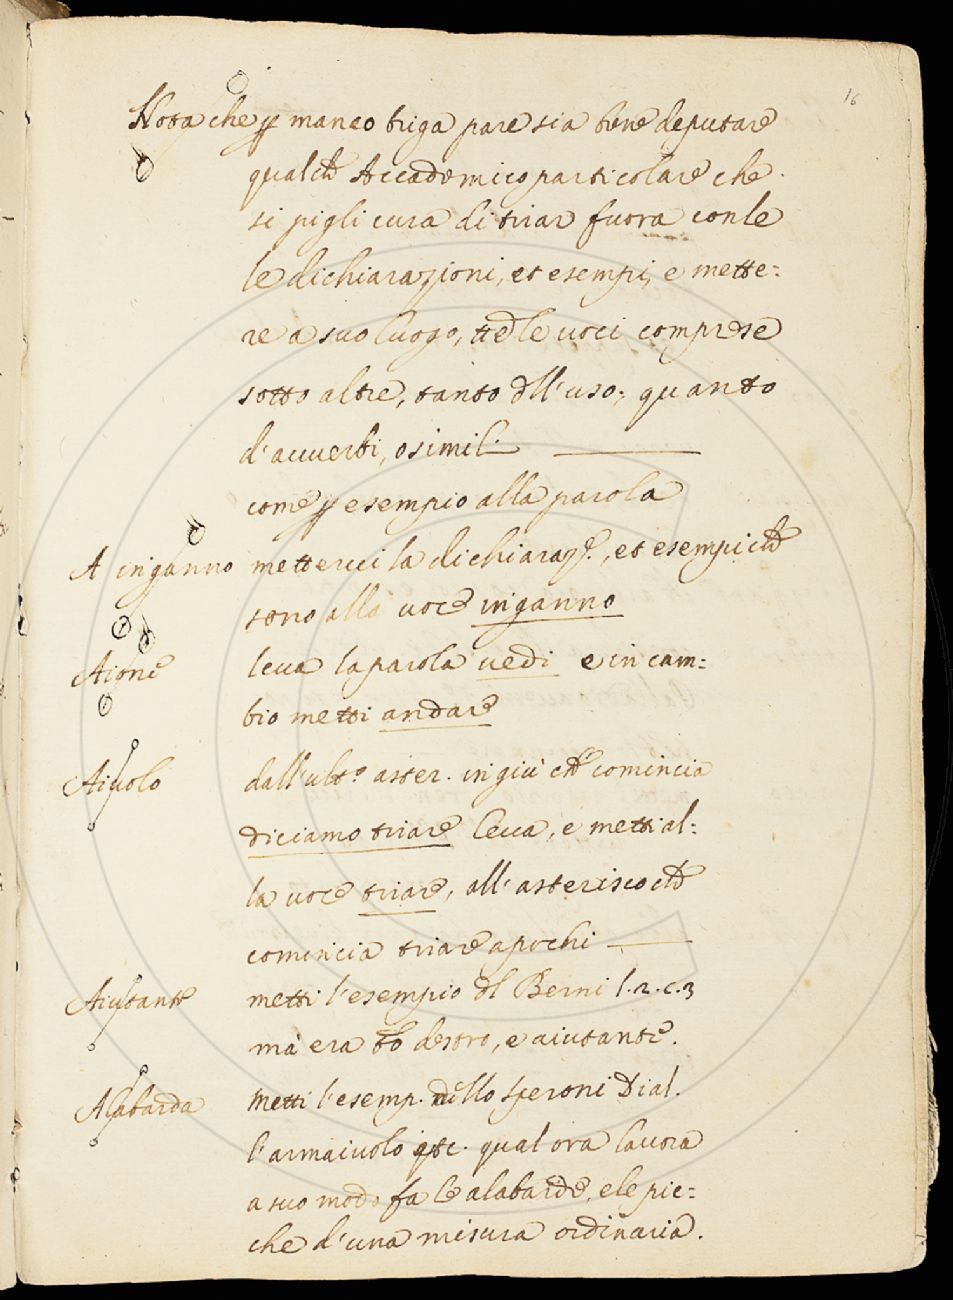 16
Nota che p manco briga pare sia bene deputare
qualche Accademico particolare che
si pigli cura di tirar fuora con le
le dichiarazioni, et esempi, e mette:
re a suo luogo, tte le voci comprese
sotto altre, tanto dll'uso, quanto
d'avverbi, o simili.
come p esempio alla parola
A inganno metterci la dichiaraze., et esempi che
sono alla voce inganno
Aione leva la parola vedi e in cam:
bio metti andare
Aiuolo dall'ulto. aster. in giù che comincia
diciamo tirare Leva, e metti al:
la voce tirare, all'asterisco che
comincia tirare a pochi
Aiutante metti l'esempio dl Berni l.2.c.3
mà era tto destro, e aiutante.
Alabarda Metti l'esemp. dello Speroni Dial.
l'armaiuolo qual ora lavora
a suo modo fa le alabarde, e le pic:
che d'una misura ordinaria.